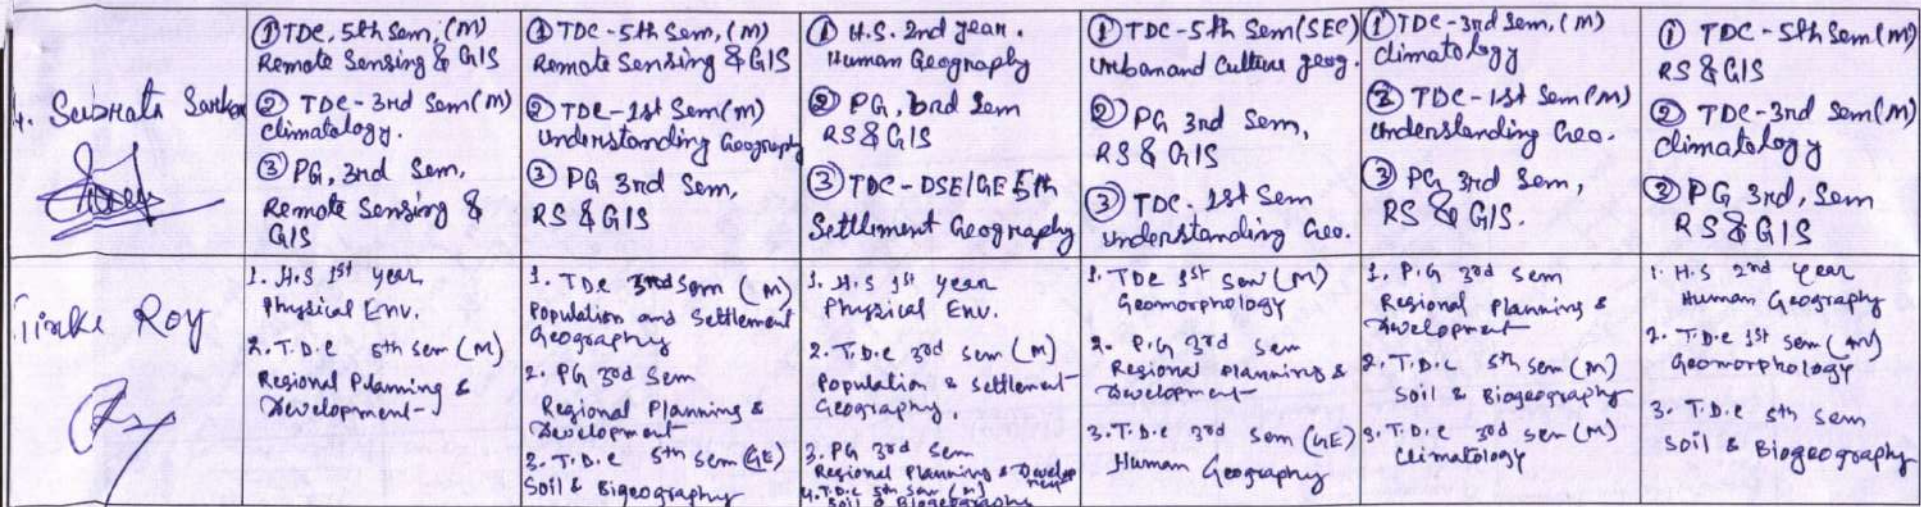 4. Subrata Sarkar
① TDC, 5th Sem, (M)
Remote Sensing & GIS
② TDC - 3rd Sem (M)
Climatology.
③ PG, 3rd Sem,
Remote Sensing &
GIS
① TDC - 5th Sem, (M)
Remote Sensing & GIS
② TDC - 1st Sem (M)
Understanding Geography
③ PG 3rd Sem,
RS & GIS
① H.S. 2nd year.
Human Geography
② PG, 3rd Sem
RS & GIS
③ TDC - DSE/GE 5th
Settlement Geography
① TDC - 5th Sem (SEC)
Urban and Culture geog.
② PG 3rd Sem,
RS & GIS
③ TDC - 1st Sem
Understanding Geo.
① TDC - 3rd Sem, (M)
Climatology
② TDC - 1st Sem (M)
Understanding Geo.
③ PG 3rd Sem,
RS & GIS.
① TDC - 5th Sem (M)
RS & GIS
② TDC - 3rd Sem (M)
Climatology
③ PG 3rd, Sem
RS & GIS
Roy
1. H.S 1st year
Physical Env.
2. T.D.C 5th sem (M)
Regional Planning &
Development
1. TDC 3rd Sem (M)
Population and Settlement
Geography
2. PG 3rd Sem
Regional Planning &
Development
3. T.D.C 5th Sem (GE)
Soil & Bigeography
1. H.S 1st year
Physical Env.
2. T.D.C 3rd sem (M)
Population & Settlement
Geography.
3. PG 3rd Sem
Regional Planning & Development
4. T.D.C 5th Sem (M)
Soil & Biogeography
1. TDC 1st Sem (M)
Geomorphology
2. P.G 3rd sem
Regional Planning &
Development
3. T.D.C 3rd sem (GE)
Human Geography
1. P.G 3rd sem
Regional Planning &
Development
2. T.D.C 5th sem (M)
Soil & Biogeography
3. T.D.C 3rd sem (M)
Climatology
1. H.S 2nd year
Human Geography
2. T.D.C 1st sem (M)
Geomorphology
3. T.D.C 5th sem
Soil & Biogeography